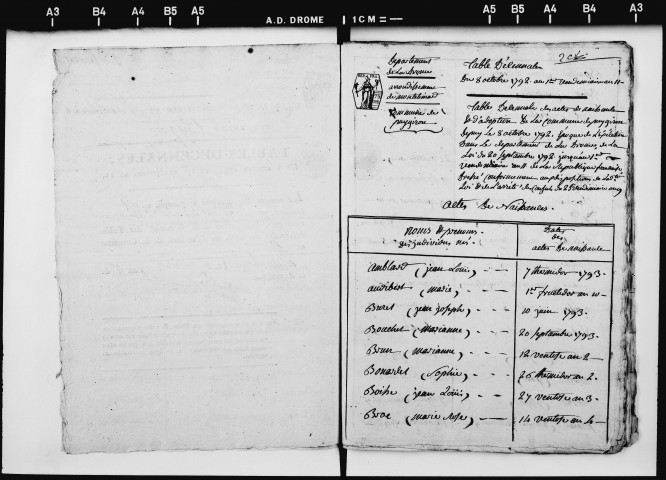 A3 B4 A4 B5 A5 A.D. DROME 1 CM = A5 B5 A4 B4 A3
département
de la Drome
arrondissement
de montelimard
Commune de
puygiron
Table Décennale
Du 8 octobre 1792 au 1er vendemiaire an 11
Table Décennale des actes de naissance
et d'adoption de la Commune de puygiron
depuis le 8 octobre 1792. époque de l'exécution
Dans le departement de la Drome, de la
Loi du 20 septembre 1792 jusqu'au 1er
vendemiaire an 11 de la République française
Dressé conformement aux dispositions de la de
Loi et de l'arreté des Consuls du 25 vendemiaire an 9
actes De Naissances.
noms et prenoms
des individus nés.
Dates
des
actes de naissance
amblard (jean Louis) 7 thermidor 1793
audibert (marie) 1er fructidor an 10
Buret (jean joseph) 10 juin 1793
Bouchet (marianne) 20 septembre 1793
Brun (marianne) 12 ventose an 2
Bonardel (Sophie) 26 thermidor an 2
Boisse (jean Louis) 27 ventose an 3
Broc (marie Rose) 14 ventose an 4